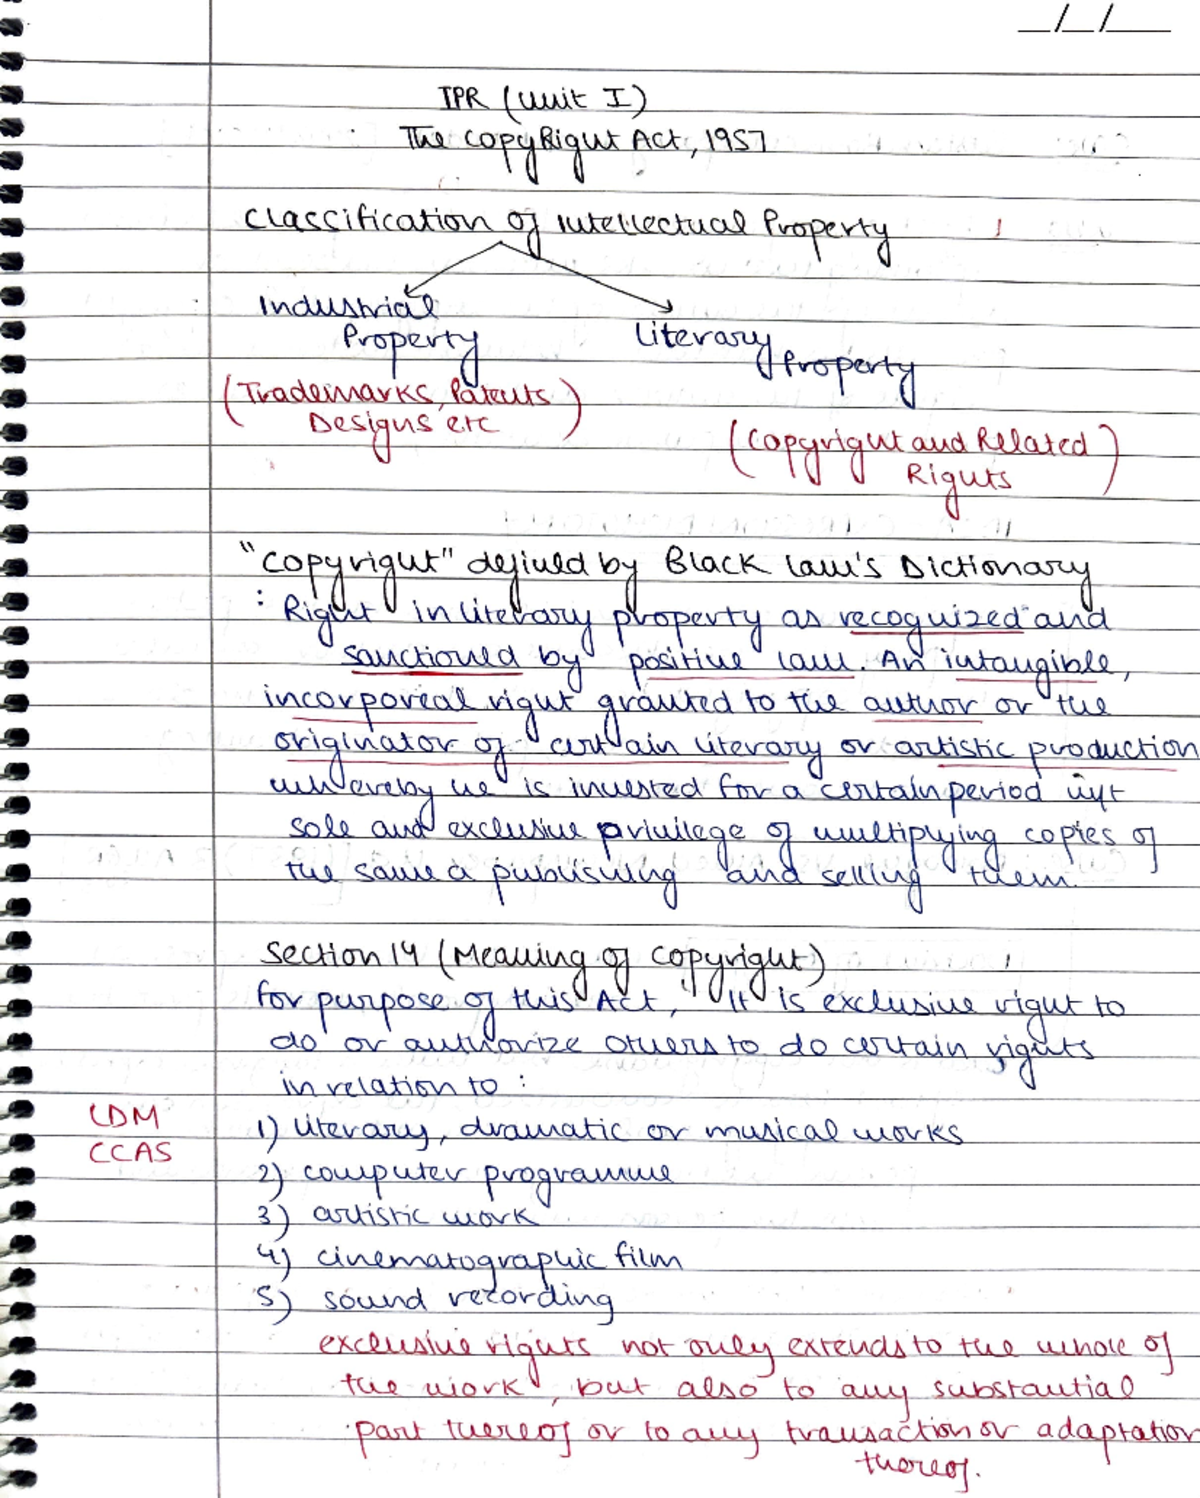 __/__/____
IPR (Unit I)
The CopyRight Act, 1957
Classification of Intellectual Property
Industrial
Property
Literary
Property
(Trademarks, Patents
Designs etc)
(Copyright and Related
Rights)
"Copyright" defined by Black Law's Dictionary
: Right in literary property as recognized and
sanctioned by positive law. An intangible,
incorporeal right granted to the author or the
originator of certain literary or artistic production
whereby he is invested for a certain period with
sole and exclusive privilege of multiplying copies of
the same a publishing and selling them.
Section 14 (Meaning of copyright)
for purpose of this Act, It is exclusive right to
do or authorize others to do certain rights
in relation to :
LDM
CCAS
1) literary, dramatic or musical works
2) computer programme
3) artistic work
4) cinematographic film
5) sound recording
exclusive rights not only extends to the whole of
the work, but also to any substantial
part thereof or to any transaction or adaptation
thereof.